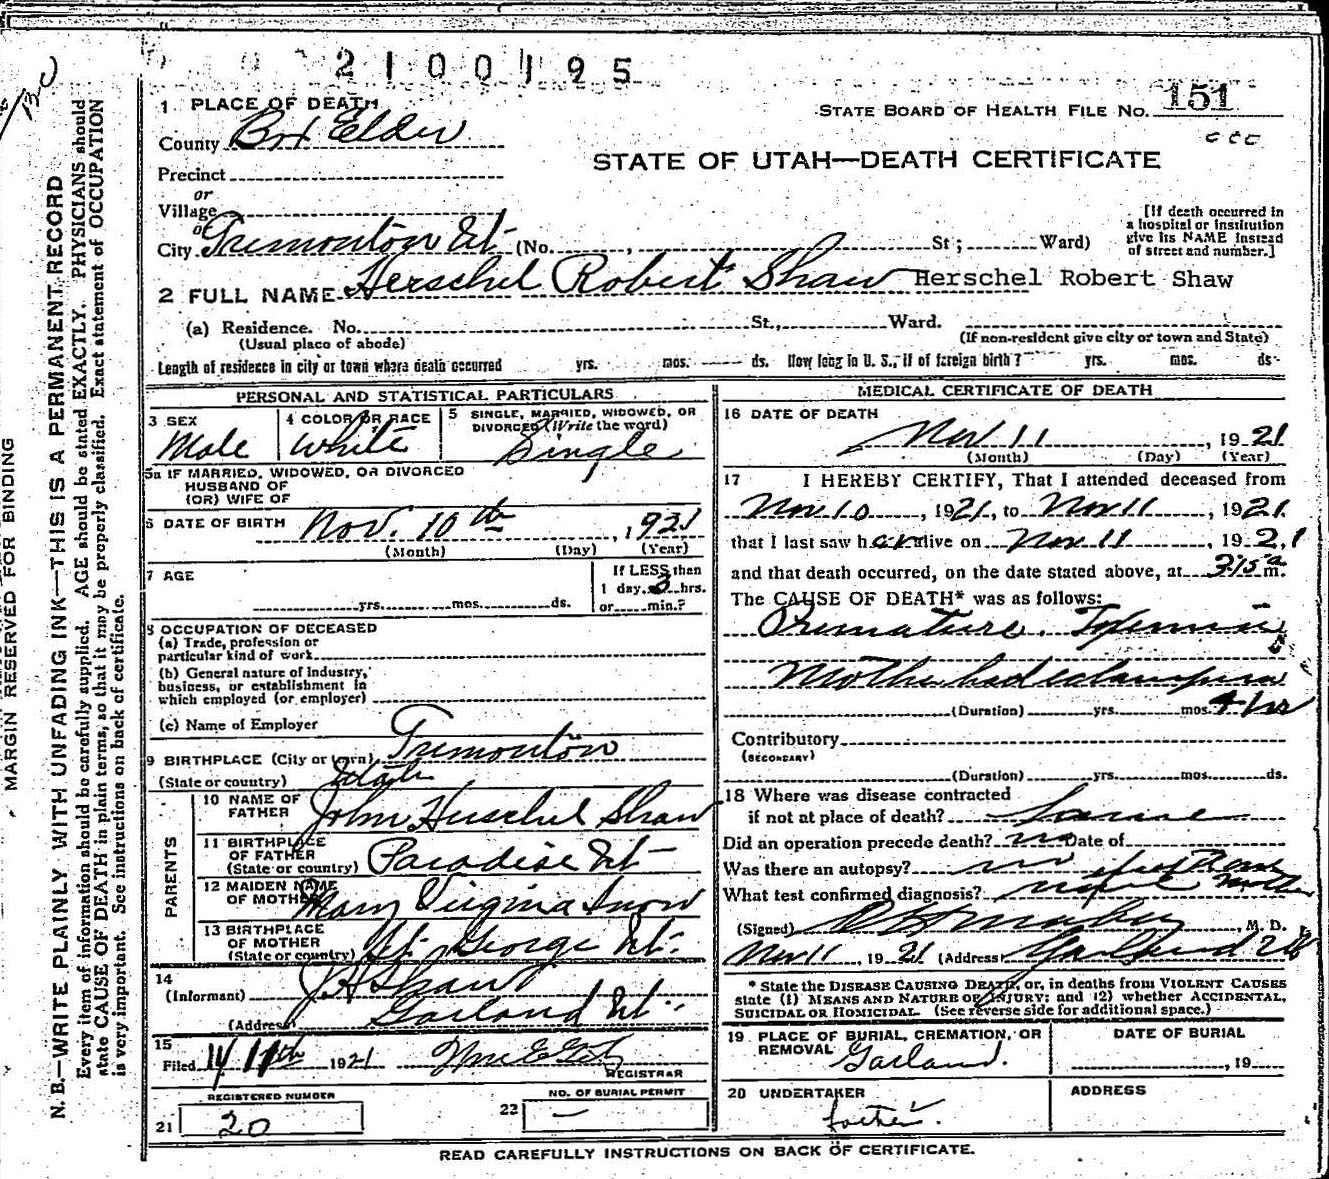 2100195
1 PLACE OF DEATH
STATE BOARD OF HEALTH FILE NO. 151
County Box Elder
STATE OF UTAH—DEATH CERTIFICATE
Precinct
or
Village
or
City Tremonton Ut. (No. , St; Ward)
[If death occurred in
a hospital or institution
give its NAME instead
of street and number.]
2 FULL NAME Herschel Robert Shaw Herschel Robert Shaw
(a) Residence. No. St., Ward.
(Usual place of abode)
(If non-resident give city or town and State)
Length of residence in city or town where death occurred yrs. mos. ds. How long in U. S., if of foreign birth? yrs. mos. ds.
PERSONAL AND STATISTICAL PARTICULARS
3 SEX
Male
4 COLOR OR RACE
White
5 SINGLE, MARRIED, WIDOWED, OR
DIVORCED (Write the word)
Single
5a IF MARRIED, WIDOWED, OR DIVORCED
HUSBAND OF
(OR) WIFE OF
6 DATE OF BIRTH Nov. 10th, 1921
(Month) (Day) (Year)
7 AGE
yrs. mos. ds.
If LESS than
1 day, 3 hrs.
or min.?
8 OCCUPATION OF DECEASED
(a) Trade, profession or
particular kind of work
(b) General nature of industry,
business, or establishment in
which employed (or employer)
(c) Name of Employer
9 BIRTHPLACE (City or town) Tremonton
(State or country) Utah
PARENTS
10 NAME OF
FATHER John Herschel Shaw
11 BIRTHPLACE
OF FATHER
(State or country) Paradise Ut
12 MAIDEN NAME
OF MOTHER Mary Virginia Snow
13 BIRTHPLACE
OF MOTHER
(State or country) St. George Ut.
14
(Informant) J H Shaw
(Address) Garland Ut.
15
Filed 11th 1921
REGISTRAR
REGISTERED NUMBER
21 20
NO. OF BURIAL PERMIT
22 —
MEDICAL CERTIFICATE OF DEATH
16 DATE OF DEATH
Nov 11, 1921
(Month) (Day) (Year)
17 I HEREBY CERTIFY, That I attended deceased from
Nov 10, 1921, to Nov 11, 1921
that I last saw h alive on Nov 11 1921
and that death occurred, on the date stated above, at 315 a m.
The CAUSE OF DEATH* was as follows:
Premature.
Mother had eclampsia
(Duration) yrs. mos. 4 hr
Contributory
(SECONDARY)
(Duration) yrs. mos. ds.
18 Where was disease contracted
if not at place of death? Same
Did an operation precede death? no Date of
Was there an autopsy? no
What test confirmed diagnosis?
(Signed) , M. D.
Nov 11, 1921 (Address) Garland
* State the DISEASE CAUSING DEATH, or, in deaths from VIOLENT CAUSES
state (1) MEANS AND NATURE OF INJURY; and (2) whether ACCIDENTAL,
SUICIDAL OR HOMICIDAL. (See reverse side for additional space.)
19 PLACE OF BURIAL, CREMATION, OR
REMOVAL Garland.
DATE OF BURIAL
, 19
20 UNDERTAKER
father.
ADDRESS
READ CAREFULLY INSTRUCTIONS ON BACK OF CERTIFICATE.
MARGIN RESERVED FOR BINDING
N. B.—WRITE PLAINLY WITH UNFADING INK—THIS IS A PERMANENT RECORD
Every item of information should be carefully supplied. AGE should be stated EXACTLY. PHYSICIANS should
state CAUSE OF DEATH in plain terms, so that it may be properly classified. Exact statement of OCCUPATION
is very important. See instructions on back of certificate.